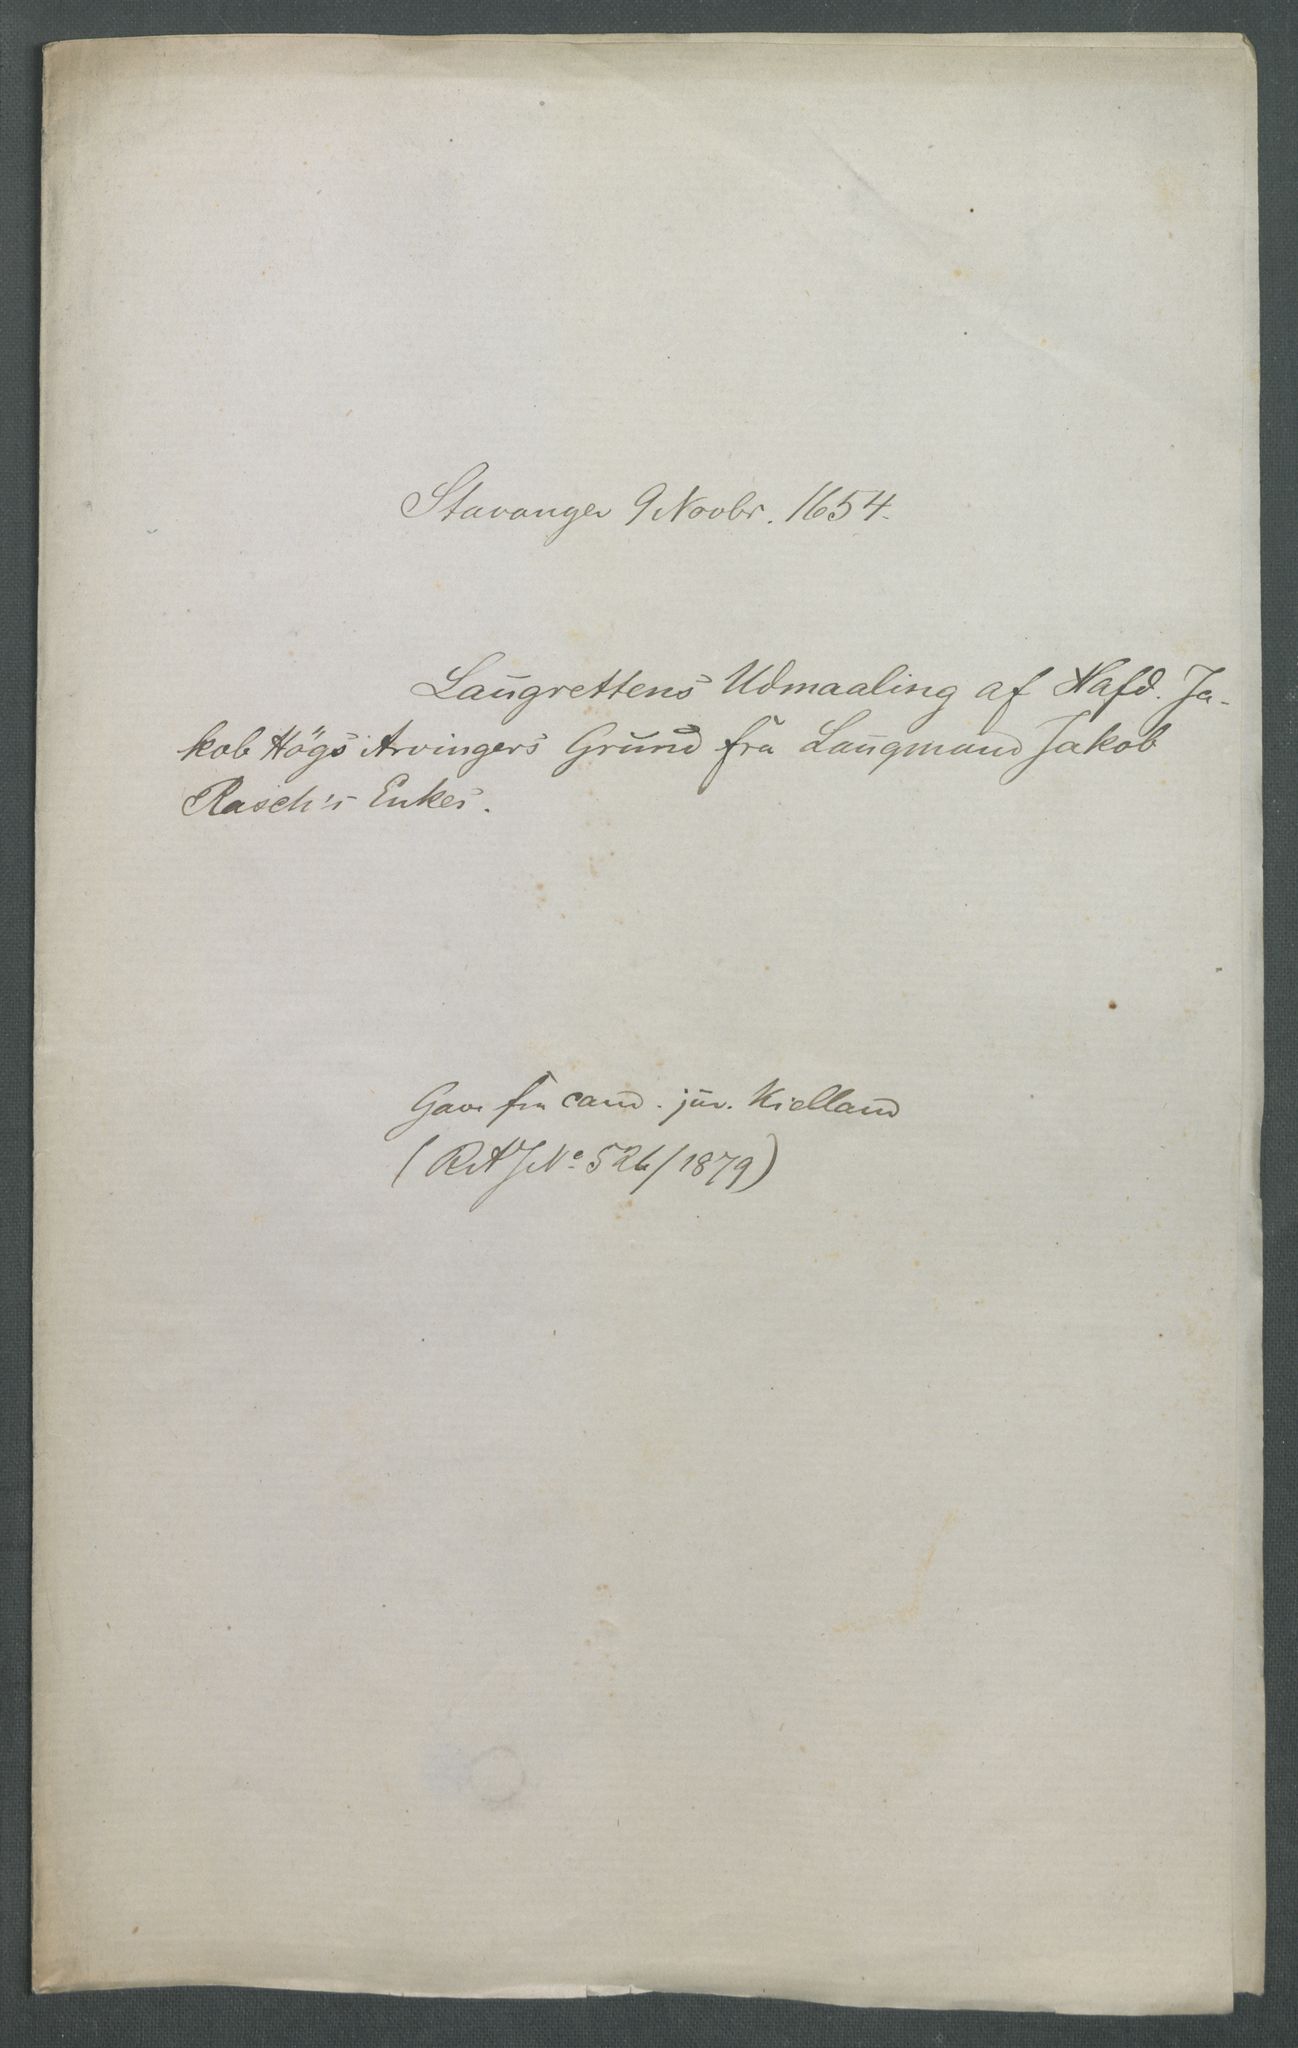 Stavanger 9 Novbr. 1654.
Laugrettens Udmaaling af Hafd. Ja-
kob Högs Arvingers Grund fra Laugmand Jakob
Rasch's Enkes.
Gave fra cand. jur. Kielland
(RAJNo 526/1879)